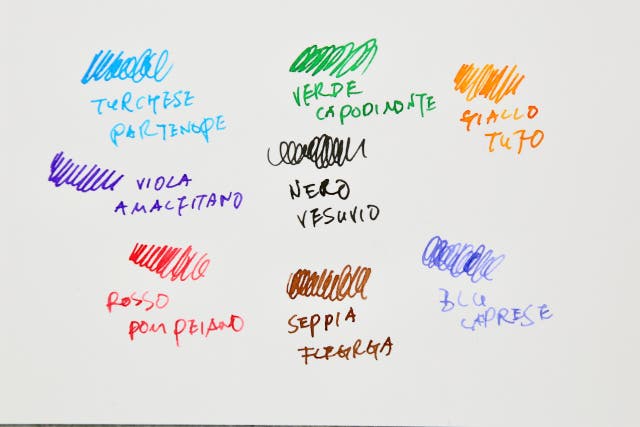 TURCHESE
PARTENOPE
VERDE
CAPODIMONTE
GIALLO
TUFO
VIOLA
AMALFITANO
NERO
VESUVIO
ROSSO
POMPEIANO
SEPPIA
FLEGREA
BLU
CAPRESE